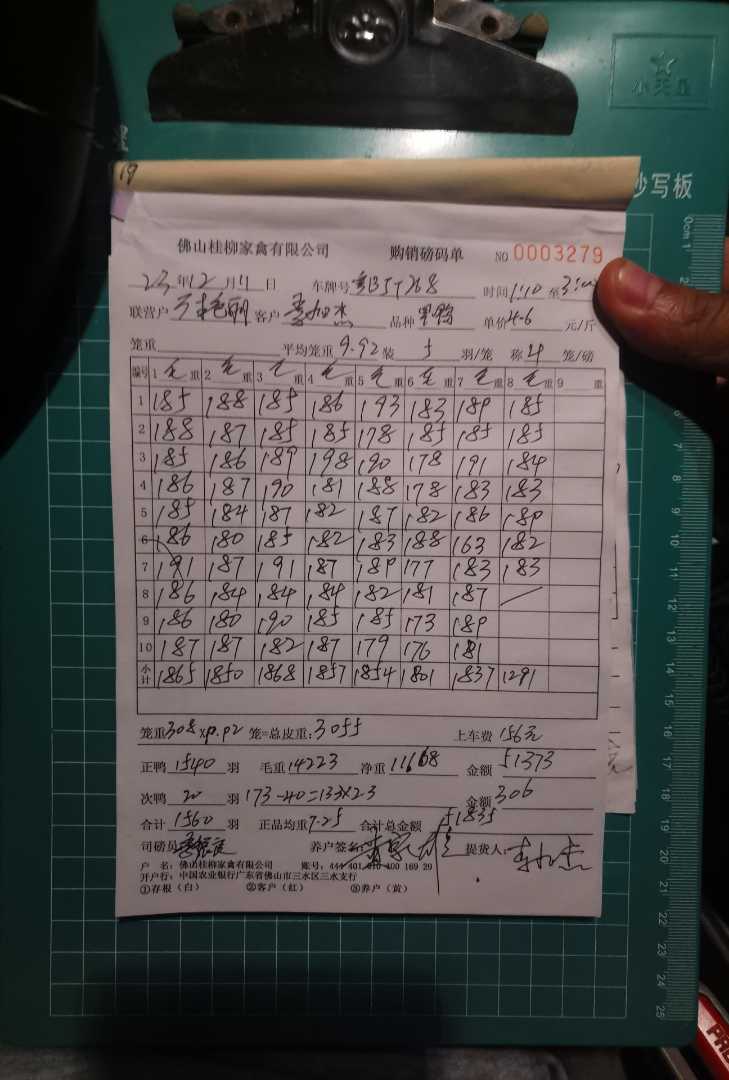 小天星
抄写板
19
佛山桂柳家禽有限公司 购销磅码单 NO 0003279
23年12月11日 车牌号 粤B5T268 时间1:10至3:00
联营户 客户 李加杰 品种 单价4.6 元/斤
笼重 平均笼重9.92装 5 羽/笼 称4 笼/磅
编号 1 毛重 2 毛重 3 毛重 4 毛重 5 毛重 6 毛重 7 毛重 8 毛重 9 重
1 185 188 185 186 193 183 189 185
2 188 187 185 185 178 185 185 185
3 185 186 189 198 190 178 191 184
4 186 187 190 181 188 178 183 183
5 185 184 187 182 187 182 186 189
6 186 180 185 182 183 188 163 182
7 191 187 191 187 189 177 183 183
8 186 184 184 184 182 181 187
9 186 180 190 185 185 173 189
10 187 187 182 187 179 176 181
小计 1865 1850 1868 1857 1854 1801 1837 1291
笼重308×9.92 笼=总皮重:3055 上车费 156元
正鸭 1540 羽 毛重14223 净重11168 金额 51373
次鸭 20 羽 173-40=133×2.3 金额 306
合计 1560 羽 正品均重7.25 合计总金额 51835
司磅员 养户签名: 提货人: 李加杰
户 名:佛山桂柳家禽有限公司 账号:444 401 010 400 169 29
开户行:中国农业银行广东省佛山市三水区三水支行
①存根(白) ②客户(红) ③养户(黄)
0cm 1
6
7
8
9
10
11
12
13
14
15
16
17
18
19
20
21
22
23
24
25